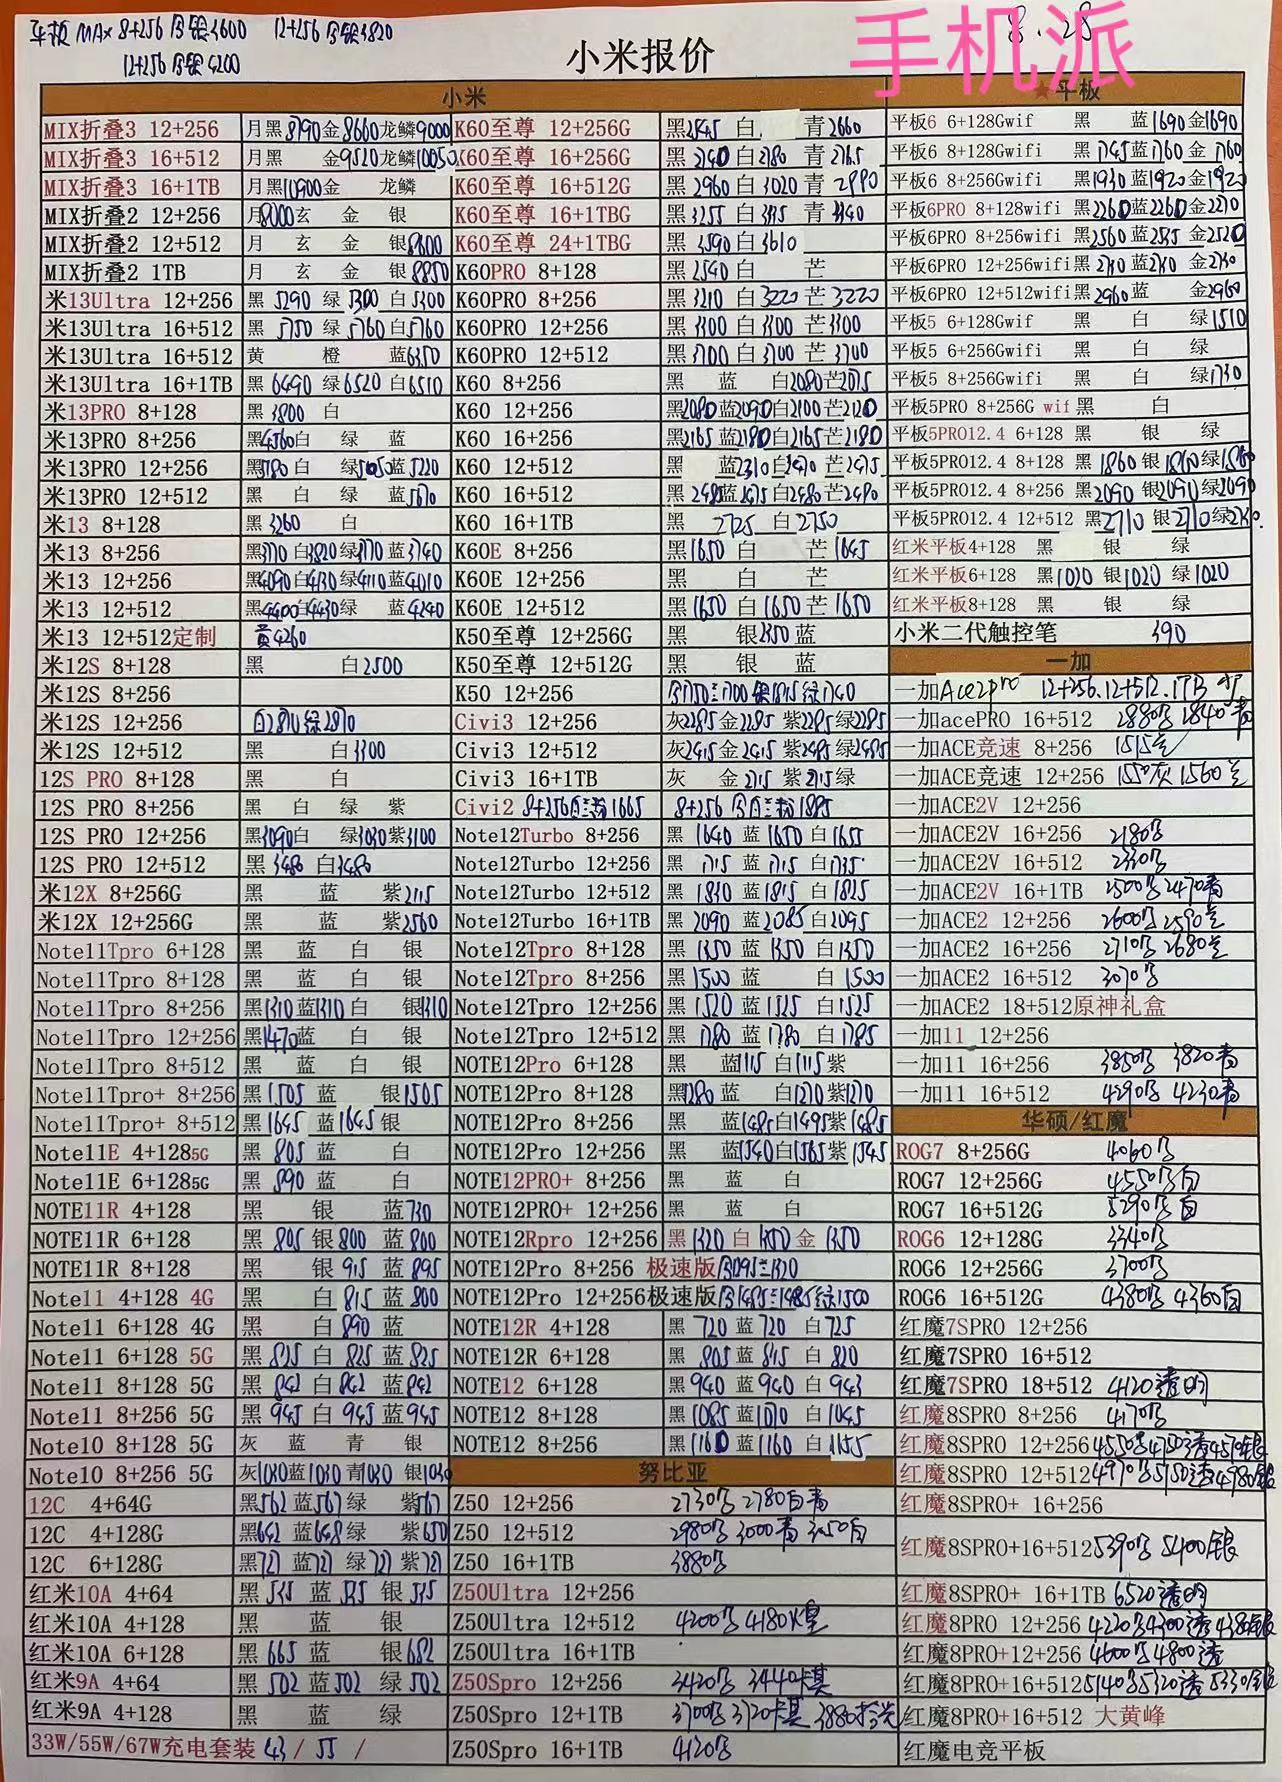 平板 MAX 8+256 3600 12+256 3820
12+256 4200
手机派
8.28
小米报价
小米
MIX折叠3 12+256 月黑8790金8660龙鳞9000
MIX折叠3 16+512 月黑 金9520龙鳞10050
MIX折叠3 16+1TB 月黑10900金 龙鳞
MIX折叠2 12+256 月8000玄 金 银
MIX折叠2 12+512 月 玄 金 银8600
MIX折叠2 1TB 月 玄 金 银8850
米13Ultra 12+256 黑 5290 绿 5300 白5300
米13Ultra 16+512 黑 5750 绿 5760 白5760
米13Ultra 16+512 黄 橙 蓝6350
米13Ultra 16+1TB 黑 6490 绿6520 白6510
米13PRO 8+128 黑3800 白
米13PRO 8+256 黑4560白 绿 蓝
米13PRO 12+256 黑5180 白 绿5050蓝5220
米13PRO 12+512 黑 白 绿 蓝5670
米13 8+128 黑3260 白
米13 8+256 黑3770 白3820绿3770 蓝3740
米13 12+256 黑4090白4130绿4110蓝4010
米13 12+512 黑4400白4430绿 蓝4240
米13 12+512定制 黄4260
米12S 8+128 黑 白2500
米12S 8+256
米12S 12+256 白2870绿2870
米12S 12+512 黑 白3300
12S PRO 8+128 黑 白
12S PRO 8+256 黑 白 绿 紫
12S PRO 12+256 黑3090白 绿3030紫3100
12S PRO 12+512 黑3480 白3480
米12X 8+256G 黑 蓝 紫2115
米12X 12+256G 黑 蓝 紫2560
Note11Tpro 6+128 黑 蓝 白 银
Note11Tpro 8+128 黑 蓝 白 银
Note11Tpro 8+256 黑1310蓝1310白 银1310
Note11Tpro 12+256 黑1470蓝 白 银
Note11Tpro 8+512 黑 蓝 白 银
Note11Tpro+ 8+256 黑1505 蓝 银1505
Note11Tpro+ 8+512 黑1645 蓝1645 银
Note11E 4+1285G 黑 805 蓝 白
Note11E 6+1285G 黑 890 蓝 白
NOTE11R 4+128 黑 银 蓝730
NOTE11R 6+128 黑 805 银800 蓝800
NOTE11R 8+128 黑 银 915 蓝895
Note11 4+128 4G 黑 白 815 蓝 800
Note11 6+128 4G 黑 白890 蓝
Note11 6+128 5G 黑 825 白 825 蓝825
Note11 8+128 5G 黑 842 白842 蓝842
Note11 8+256 5G 黑 945 白 945 蓝945
Note10 8+128 5G 灰 蓝 青 银
Note10 8+256 5G 灰1030蓝1030青1030 银1030
12C 4+64G 黑562 蓝567 绿 紫567
12C 4+128G 黑642 蓝648绿 紫650
12C 6+128G 黑727 蓝727 绿727 紫727
红米10A 4+64 黑 535 蓝 525 银 535
红米10A 4+128 黑 蓝 银
红米10A 6+128 黑 665 蓝 银682
红米9A 4+64 黑 502 蓝502 绿 502
红米9A 4+128 黑 蓝 绿
33W/55W/67W充电套装 43 / 55 /
K60至尊 12+256G 黑2545 白 青2660
K60至尊 16+256G 黑2740白2780 青2765
K60至尊 16+512G 黑2960 白3020 青2990
K60至尊 16+1TBG 黑3255 白3315 青3340
K60至尊 24+1TBG 黑3590白3610
K60PRO 8+128 黑2540 白 芒
K60PRO 8+256 黑3210 白3220芒3220
K60PRO 12+256 黑3100 白3100 芒3100
K60PRO 12+512 黑3700白3700 芒3700
K60 8+256 黑 蓝 白2080芒2075
K60 12+256 黑2080蓝2090白2100芒2120
K60 16+256 黑2165 蓝2180白2165芒2180
K60 12+512 黑 蓝2310白2470芒2475
K60 16+512 黑2485蓝2475白2480芒2490
K60 16+1TB 黑 2725 白2750
K60E 8+256 黑1650 白 芒1645
K60E 12+256 黑 白 芒
K60E 12+512 黑1650 白1650芒1650
K50至尊 12+256G 黑 银2350蓝
K50至尊 12+512G 黑 银 蓝
K50 12+512 1750兰1700银1815绿1740
Civi3 12+256 灰2285金2285 紫2285绿2285
Civi3 12+512 灰2415金2415 紫2485绿2485
Civi3 16+1TB 灰 金2715 紫2715绿
Civi2 8+256白兰粉1665 8+256 白兰粉1885
Note12Turbo 8+256 黑 1640 蓝1650 白1655
Note12Turbo 12+256 黑 1715 蓝1715 白1735
Note12Turbo 12+512 黑 1830 蓝1815 白1825
Note12Turbo 16+1TB 黑 2090 蓝2085白2095
Note12Tpro 8+128 黑 1350 蓝 1350 白1350
Note12Tpro 8+256 黑1500 白1500
Note12Tpro 12+256 黑 1520 蓝 1525 白1525
Note12Tpro 12+512 黑 1780 蓝 1780 白1785
NOTE12Pro 6+128 黑 蓝1115 白1115紫
NOTE12Pro 8+128 黑1280 蓝 白1270紫1270
NOTE12Pro 8+256 黑 蓝1485白1495紫1485
NOTE12Pro 12+256 黑 蓝1540白1565紫1545
NOTE12PRO+ 8+256 黑 蓝 白
NOTE12PRO+ 12+256 黑 蓝 白
NOTE12Rpro 12+256 黑1320 白1350 金 1350
NOTE12Pro 8+256 极速版 1295兰1320
NOTE12Pro 12+256极速版 1485兰1485绿1500
NOTE12R 4+128 黑 720 蓝720 白725
NOTE12R 6+128 黑 805 蓝 815 白 820
NOTE12 6+128 黑940 蓝940 白 943
NOTE12 8+128 黑1085 蓝1070 白1045
NOTE12 8+256 黑1160 蓝1160 白1155
努比亚
Z50 12+256 2730 2780白青
Z50 12+512 2980 3000青 3050白
Z50 16+1TB 3880
Z50Ultra 12+256
Z50Ultra 12+512 4200 4180火星
Z50Ultra 16+1TB
Z50Spro 12+256 3420 3440卡其
Z50Spro 12+1TB 3700 3720卡其 3880
Z50Spro 16+1TB 4120
★平板
平板6 6+128Gwif 黑 蓝1690金1690
平板6 8+128Gwifi 黑1745蓝1760 金1760
平板6 8+256Gwifi 黑1930 蓝1920 金1920
平板6PRO 8+128wifi 黑2260蓝2260金2270
平板6PRO 8+256wifi 黑2560蓝2535 金2520
平板6PRO 12+256wifi黑2730 蓝2730 金2730
平板6PRO 12+512wifi黑2960蓝 金2960
平板5 6+128Gwif 黑 白 绿1510
平板5 6+256Gwifi 黑 白 绿
平板5 8+256Gwifi 黑 白 绿1730
平板5PRO 8+256G wif 黑 白
平板5PRO12.4 6+128 黑 银 绿
平板5PRO12.4 8+128 黑 1860 银1860绿1860
平板5PRO12.4 8+256 黑2090 银2090绿2090
平板5PRO12.4 12+512 黑2710 银2710绿2730
红米平板4+128 黑 银 绿
红米平板6+128 黑1020 银1020 绿1020
红米平板8+128 黑 银 绿
小米二代触控笔 390
一加
一加Ace2pro 12+256.12+512.1TB
一加acePRO 16+512 2880 2840青
一加ACE竞速 8+256 1515兰
一加ACE竞速 12+256 1550灰 1560兰
一加ACE2V 12+256
一加ACE2V 16+256 2180
一加ACE2V 16+512 2330
一加ACE2V 16+1TB 2500 2470青
一加ACE2 12+256 2600 2590兰
一加ACE2 16+256 2710 2680兰
一加ACE2 16+512 3070
一加ACE2 18+512原神礼盒
一加11 12+256
一加11 16+256 3850 3820青
一加11 16+512 4290 4230青
华硕/红魔
ROG7 8+256G 4060
ROG7 12+256G 4550白
ROG7 16+512G 5290白
ROG6 12+128G 3340
ROG6 12+256G 3700
ROG6 16+512G 4380 4360白
红魔7SPRO 12+256
红魔7SPRO 16+512
红魔7SPRO 18+512 4120透明
红魔8SPRO 8+256 4170
红魔8SPRO 12+256 4550 4750透4570银
红魔8SPRO 12+512 4970 5150透4980银
红魔8SPRO+ 16+256
红魔8SPRO+16+512 5390 5400银
红魔8SPRO+ 16+1TB 6520透明
红魔8PRO 12+256 4220 4300透4380银
红魔8PRO+12+256 4600 4800透
红魔8PRO+16+512 5140 5320透5330银
红魔8PRO+16+512 大黄蜂
红魔电竞平板